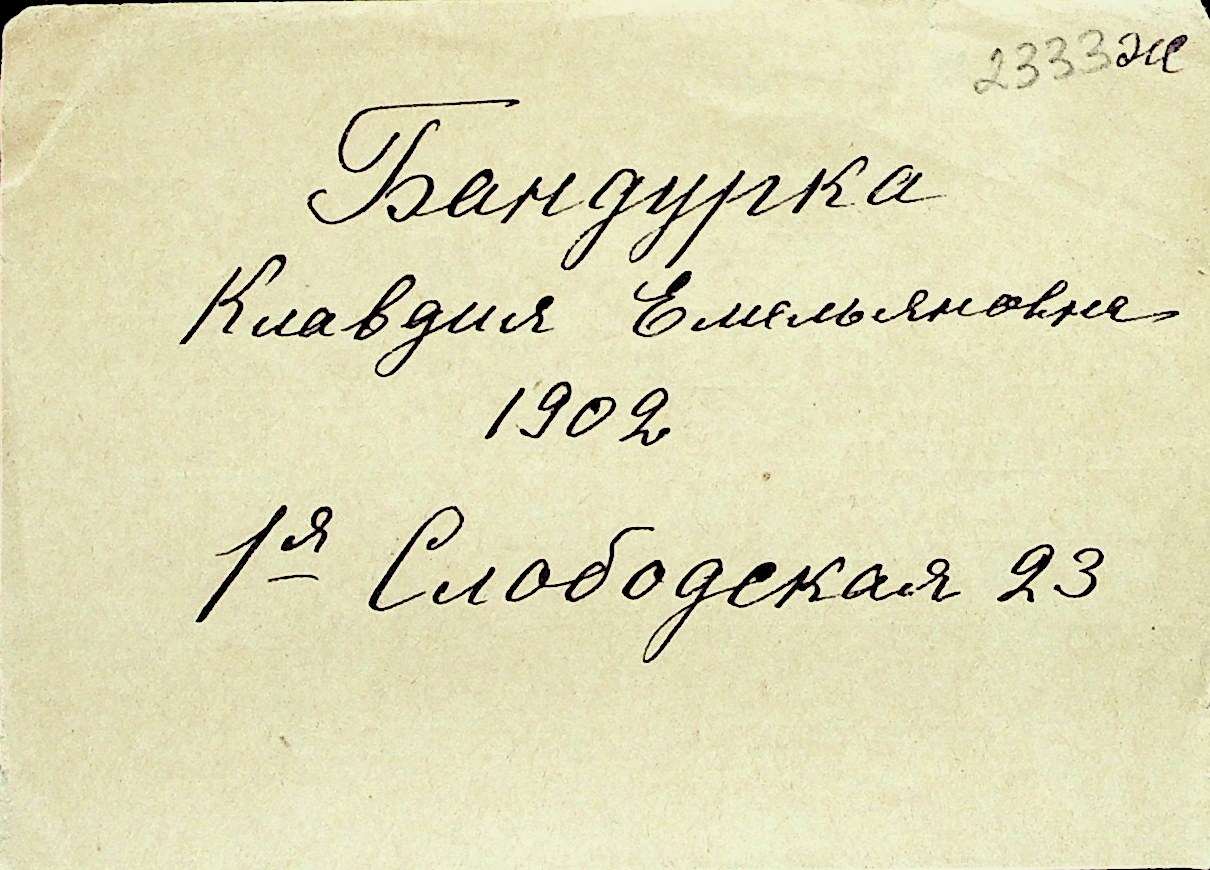 2333ж
Бандурка
Клавдия Емельяновна
1902
1я Слободская 23